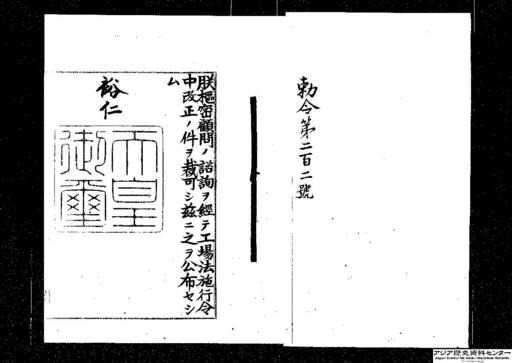 勅令第二百二號
朕樞密顧問ノ諮詢ヲ經テ工場法施行令
中改正ノ件ヲ裁可シ茲ニ之ヲ公布セシ
ム
裕仁
天皇
御璽
アジア歴史資料センター
Japan Center for Asian Historical Records